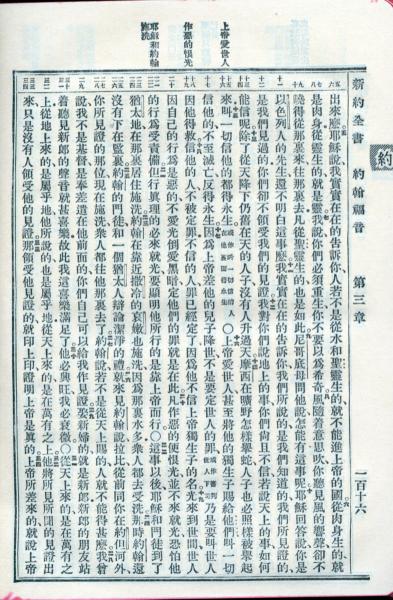 約
新約全書　約翰福音　第三章　一百十六
上帝愛世人
作惡的恨光
耶穌和約翰施洗
出來麼耶穌說我實實在在的告訴你人若不是從水和聖靈生的就不能進上帝的國從肉身生的就
是肉身從靈生的就是靈我說你們必須重生你不要以為希奇風隨着意思吹你聽見風的響聲卻不
曉得從那裏來往那裏去凡從聖靈生的也是如此尼哥底母問他說怎能有這事呢耶穌回答說你是
以色列人的先生還不明白這事麼我實實在在的告訴你我們所說的是我們知道的我們所見證的
是我們見過的你們卻不領受我們的見證我對你們說地上的事你們尚且不信若說天上的事如何
能信呢除了從天降下仍舊在天的人子沒有人升過天摩西在曠野怎樣舉蛇人子也必照樣被舉起
來叫一切信他的都得永生或作叫一切信的人在他裏面得永生○上帝愛世人甚至將他的獨生子賜給他們叫一切
信他的不至滅亡反得永生因為上帝差他的兒子降世不是要定世人的罪或作審判世人下同乃是要叫世人
因他得救信他的人不被定罪不信的人罪已經定了因為他不信上帝獨生子的名光來到世間世人
因自己的行為是惡的不愛光倒愛黑暗定他們的罪就是在此凡作惡的便恨光並不來就光恐怕他
的行為受責備但行真理的必來就光要顯明他所行的是靠上帝而行○這事以後耶穌和門徒到了
猶太地在那裏居住施洗約翰在靠近撒冷的哀嫩也施洗因為那裏水多衆人都去受洗那時約翰還
沒有下在監裏約翰的門徒和一個猶太人辯論潔淨的禮就來見約翰說拉比從前同你在約但河外
你所見證的那位現在施洗衆人都往他那裏去了約翰說若不是從天上賜的人就不能得甚麼我曾
說我不是基督是奉差遣在他前面的你們自己可以給我作見證娶新婦的就是新郎新郎的朋友站
着聽見新郎的聲音就甚喜樂故此我這喜樂滿足了他必興旺我必衰微○從天上來的是在萬有之
上從地上來的是屬乎地他所說的也是屬乎地從天上來的是在萬有之上他將所見所聞的見證出
來只是沒有人領受他的見證那領受他見證的就印上印證明上帝是真的上帝所差來的就說上帝